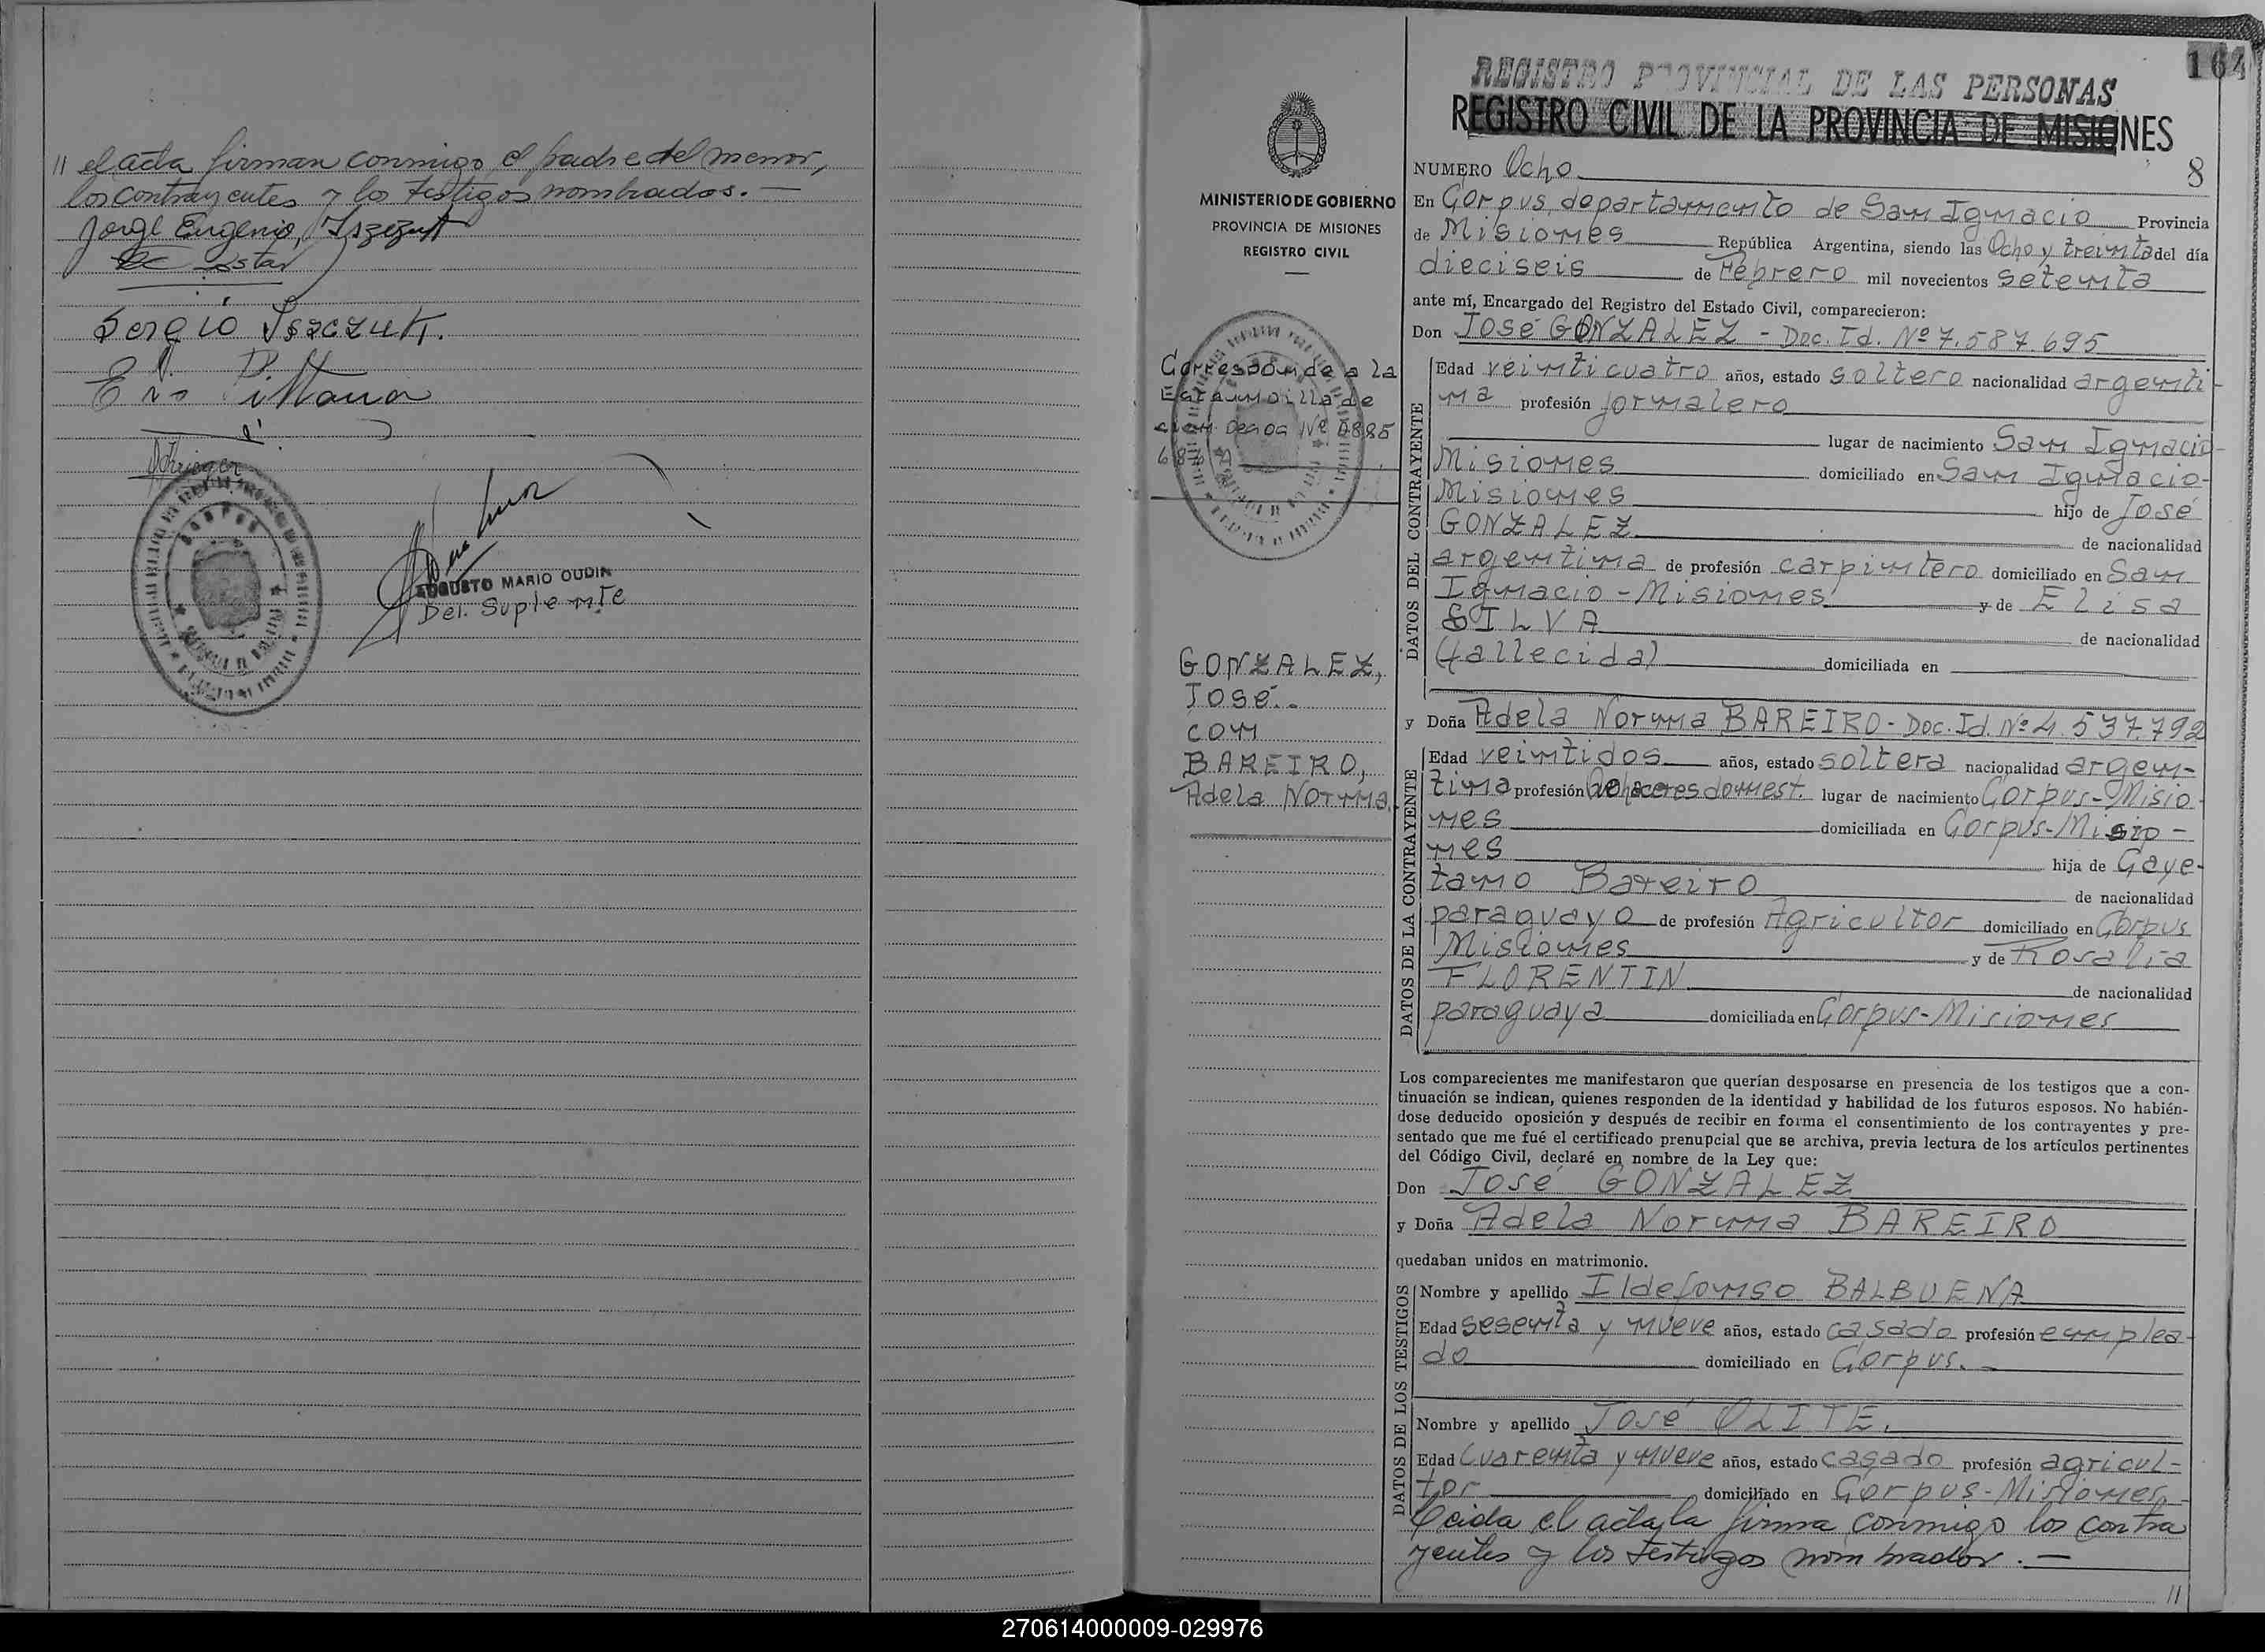 // el acta firman conmigo el padre del menor,
los contrayentes y los testigos nombrados. —
Jorge Eugenio
Sergio Iszczuk.
Pittana
AUGUSTO MARIO OUDIN
Del. Suplente
164
REGISTRO PROVINCIAL DE LAS PERSONAS
REGISTRO CIVIL DE LA PROVINCIA DE MISIONES
MINISTERIO DE GOBIERNO
PROVINCIA DE MISIONES
REGISTRO CIVIL
Corresponde a la
Estampilla de
GONZALEZ,
José.-
con
BAREIRO,
Adela Norma.
NUMERO Ocho 8
En Corpus, departamento de San Ignacio Provincia
de Misiones República Argentina, siendo las Ocho y treinta del día
dieciseis de Febrero mil novecientos setenta
ante mí, Encargado del Registro del Estado Civil, comparecieron:
Don José GONZALEZ - Doc. Id. Nº 7.587.695
DATOS DEL CONTRAYENTE
Edad veinticuatro años, estado soltero nacionalidad argenti-
na profesión jornalero
lugar de nacimiento San Ignacio-
Misiones domiciliado en San Ignacio-
Misiones hijo de José
GONZALEZ de nacionalidad
argentina de profesión carpintero domiciliado en San
Ignacio - Misiones y de Elisa
SILVA de nacionalidad
(fallecida) domiciliada en
y Doña Adela Norma BAREIRO - Doc. Id. Nº 4.537.792
DATOS DE LA CONTRAYENTE
Edad veintidos años, estado soltera nacionalidad argen-
tina profesión Quehaceres domest. lugar de nacimiento Corpus-Misio-
nes domiciliada en Corpus-Misio-
nes hija de Caye-
tano Bareiro de nacionalidad
paraguayo de profesión Agricultor domiciliado en Corpus
Misiones y de Rosalia
FLORENTIN de nacionalidad
paraguaya domiciliada en Corpus-Misiones
Los comparecientes me manifestaron que querían desposarse en presencia de los testigos que a con-
tinuación se indican, quienes responden de la identidad y habilidad de los futuros esposos. No habién-
dose deducido oposición y después de recibir en forma el consentimiento de los contrayentes y pre-
sentado que me fué el certificado prenupcial que se archiva, previa lectura de los artículos pertinentes
del Código Civil, declaré en nombre de la Ley que:
Don José GONZALEZ
y Doña Adela Norma BAREIRO
quedaban unidos en matrimonio.
DATOS DE LOS TESTIGOS
Nombre y apellido Ildefonso BALBUENA
Edad sesenta y nueve años, estado casado profesión emplea-
do domiciliado en Corpus.-
Nombre y apellido José OLITE.
Edad Cuarenta y nueve años, estado casado profesión agricul-
tor domiciliado en Corpus-Misiones-
Leida el acta, la firma conmigo los contra
yentes y los testigos nombrados. —
//
270614000009-029976